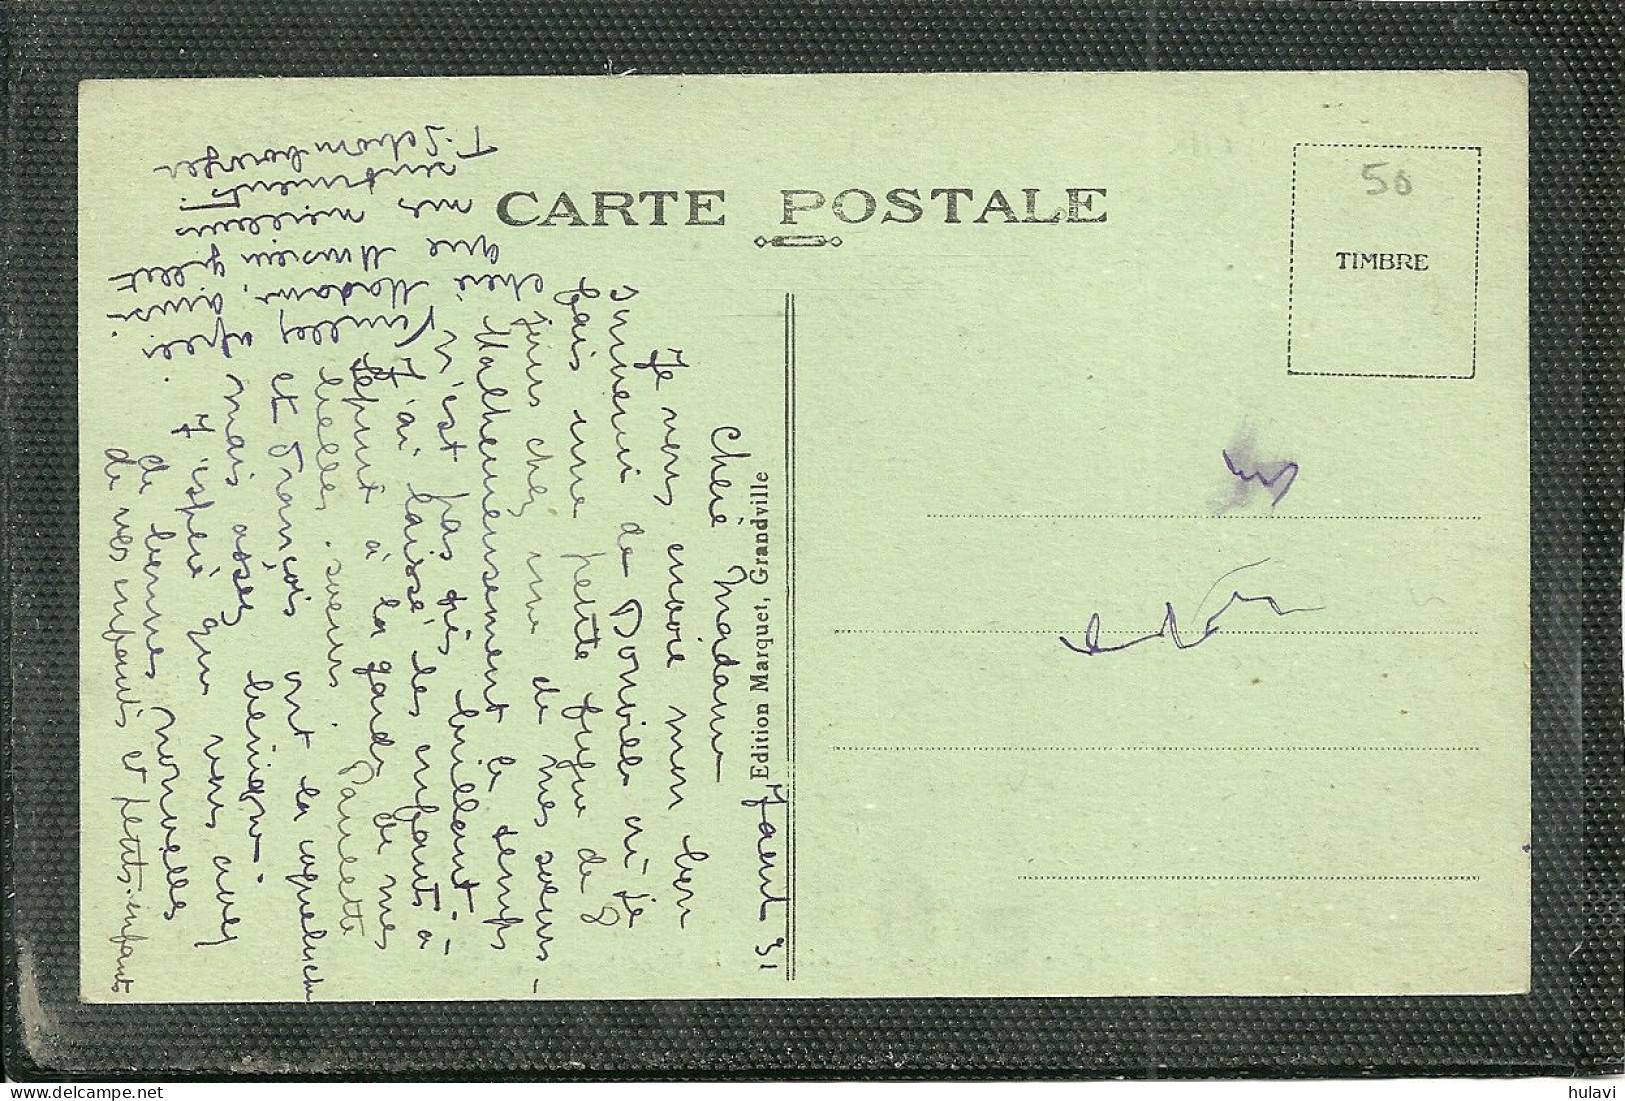 CARTE POSTALE
50
TIMBRE
Edition Marquet, Grandville
7 août 31
Chère Madame
Je vous envoie mon bon
souvenir de Donville où je
fais une petite fugue de 8
jours chez une de mes sœurs -
Malheureusement le temps
n'est pas très brillant -
J'ai laissé les enfants à
à la garde de mes
belles-sœurs. Paulette
et François ont la coqueluche
mais assez bénigne
J'espère que vous avez
de bonnes nouvelles
de vos enfants et petits-enfants
Veuillez
chère Madame, ainsi
que Monsieur
mes meilleurs
sentiments.
hulavi
delcampe.net